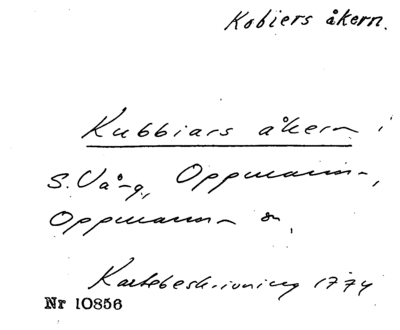 Kobiers åkern.
Kubbiars åkern i
S. Vång, Oppmanna,
Oppmanna sn,
Kartebeskrivning 1774
Nr 10856